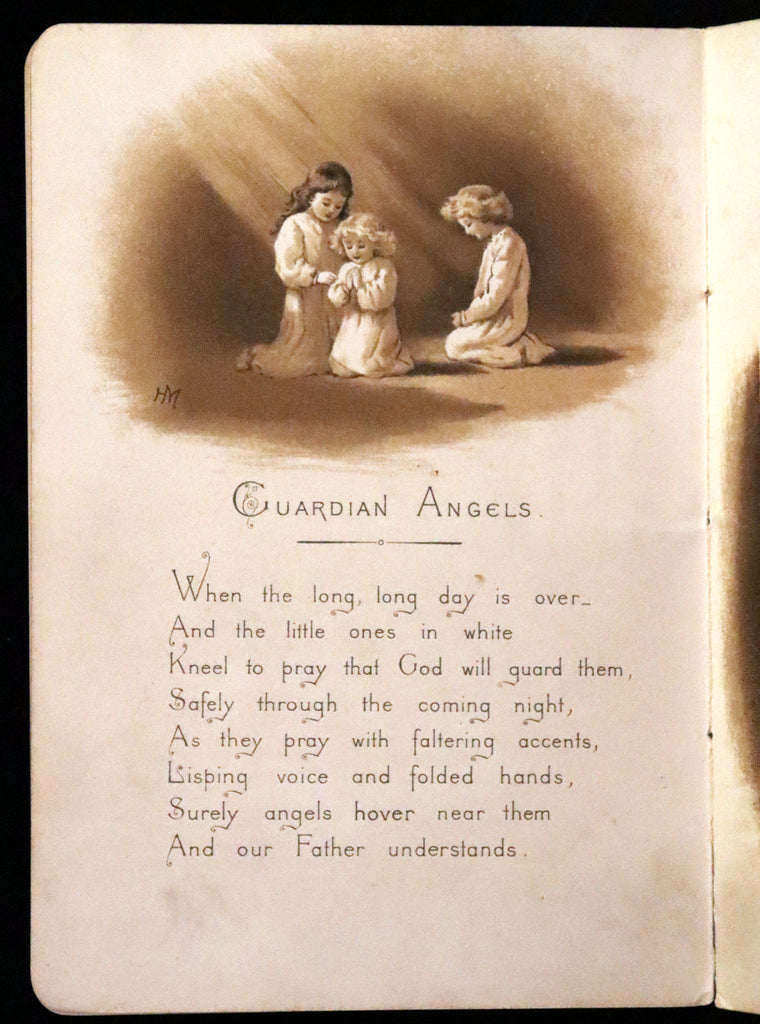 HM
GUARDIAN ANGELS.
When the long, long day is over_
And the little ones in white
Kneel to pray that God will guard them,
Safely through the coming night,
As they pray with faltering accents,
Lisping voice and folded hands,
Surely angels hover near them
And our Father understands.